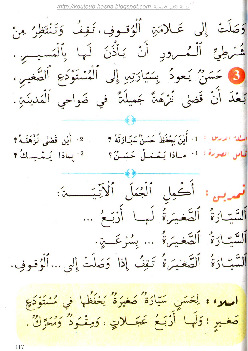 وَصَلَتْ إِلَى عَلَامَةِ الْوُقُوفِ، تَقِفُ وَتَنْتَظِرُ مِنْ
شُرْطِيِّ الْمُرُورِ أَنْ يَأْذَنَ لَهَا بِالْمَسِيرِ.
3 حَسَنٌ يَعُودُ بِسَيَّارَتِهِ إِلَى الْمُسْتَوْدَعِ الصَّغِيرِ،
بَعْدَ أَنْ قَضَى نُزْهَةً جَمِيلَةً فِي ضَوَاحِي الْمَدِينَةِ.
1- أَيْنَ يَحْفَظُ حَسَنٌ سَيَّارَتَهُ؟ 2- أَيْنَ قَضَى نُزْهَتَهُ؟
1- مَاذَا يَعْمَلُ حَسَنٌ؟ 2- بِمَاذَا يُمْسِكُ؟
تمرين: أَكْمِلِ الْجُمَلَ الْآتِيَةَ:
السَّيَّارَةُ الصَّغِيرَةُ لَهَا أَرْبَعُ ...
السَّيَّارَةُ الصَّغِيرَةُ ... بِسُرْعَةٍ.
السَّيَّارَةُ الصَّغِيرَةُ تَقِفُ إِذَا وَصَلَتْ إِلَى ... الْوُقُوفِ.
إملاء: لِحَسَنٍ سَيَّارَةٌ صَغِيرَةٌ يَحْفَظُهَا فِي مُسْتَوْدَعٍ
صَغِيرٍ؛ وَلَهَا أَرْبَعُ عَجَلَاتٍ، وَمِقْوَدٌ وَمُحَرِّكٌ.